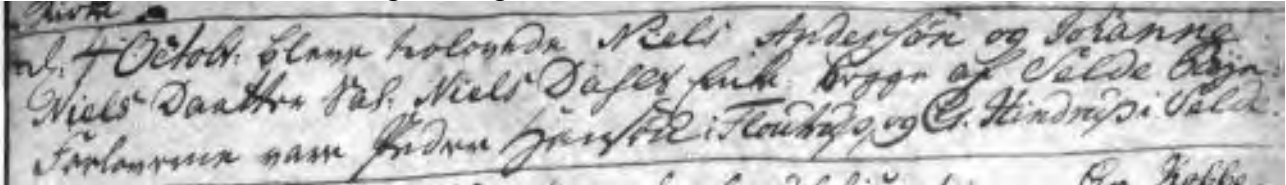 Kirke
d. 4 Octobr. bleve trolovede Niels Andersön og Johanne
Niels Daatter Sal. Niels Dahls Enke. begge af Selde Bÿe.
Forloverne vare Peder Jensön i Floutrup, og C. Hindrup i Selde.